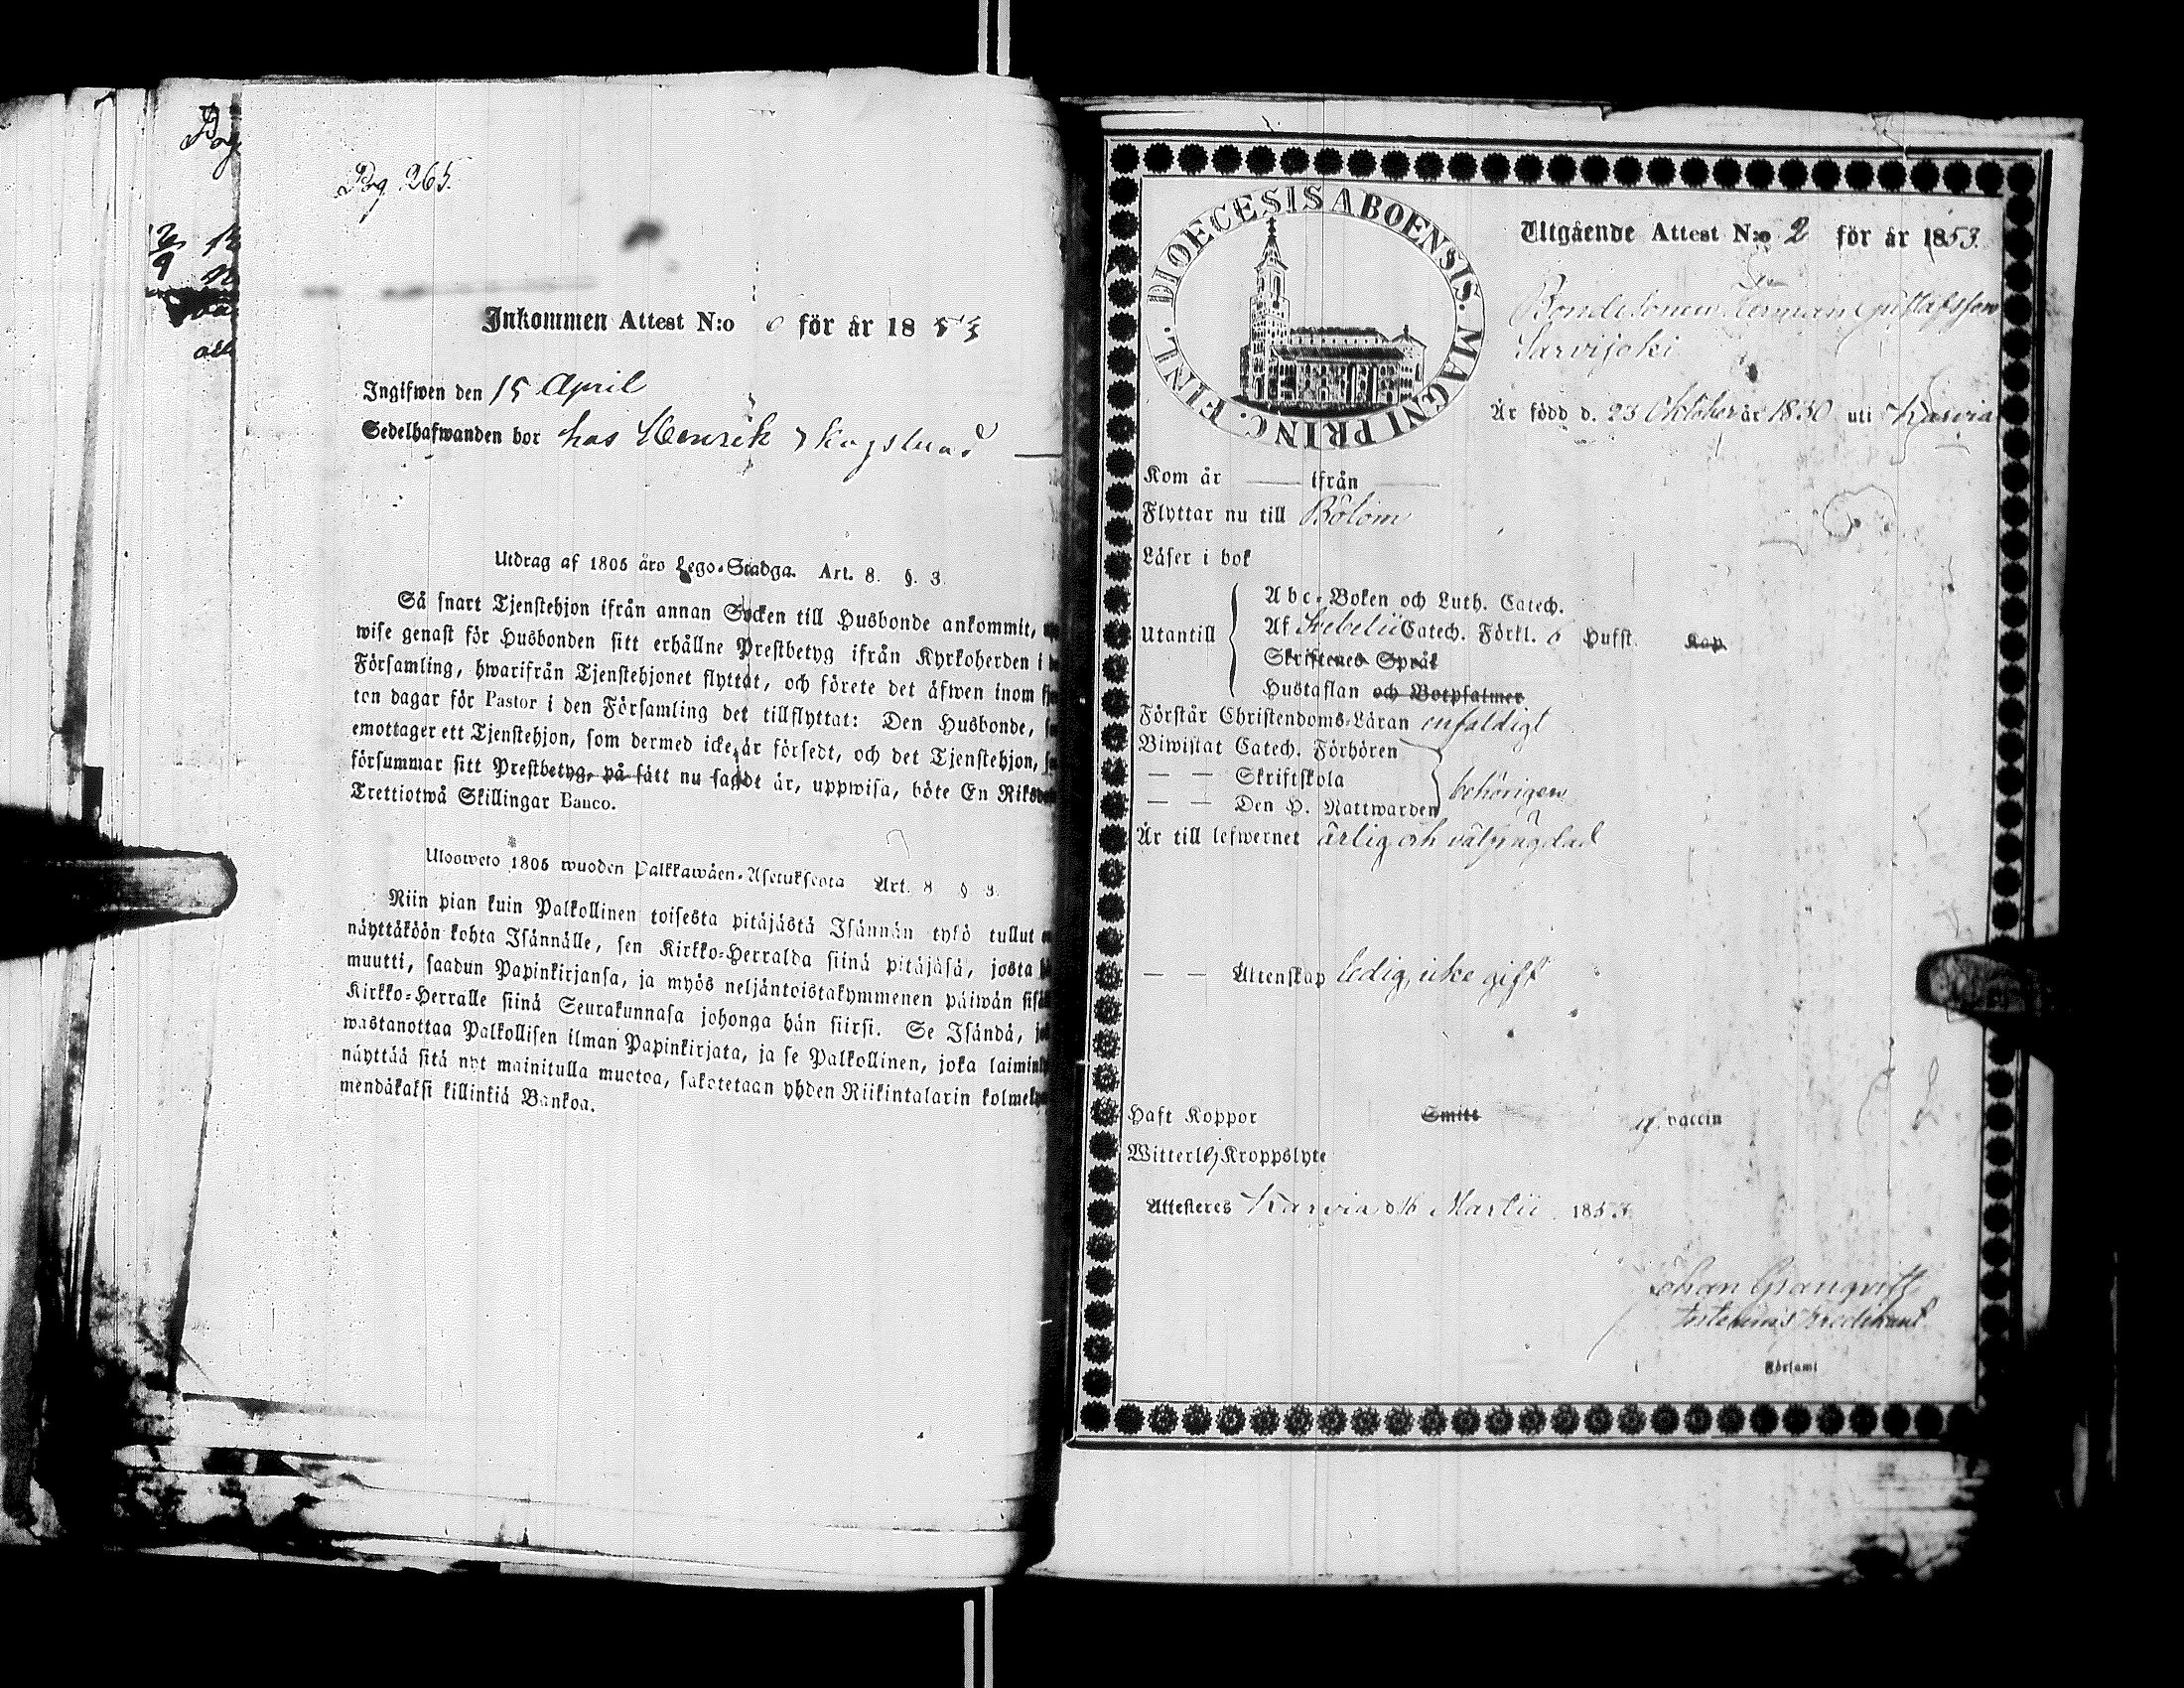 Pag. 265.
Inkommen Attest N:o 6 för år 1853
Ingifwen den 15 April
Sedelhafwanden bor hos Henrik Skogslund
Utdrag af 1805 års Lego-Stadga. Art. 8. §. 3.
Så snart Tjenstehjon ifrån annan Socken till Husbonde ankommit,
wise genast för Husbonden sitt erhållne Prestbetyg ifrån Kyrkoherden i
Församling, hwarifrån Tjenstehjonet flyttat, och förete det äfwen inom
ton dagar för Pastor i den Församling det tillflyttat: Den Husbonde,
emottager ett Tjenstehjon, som dermed icke är försedt, och det Tjenstehjon,
försummar sitt Prestbetyg, på sätt nu sagdt är, uppwisa, böte En
Trettiotwå Skillingar Banco.
Ulosweto 1805 wuoden Palkkawäen-Asetuksesta Art. 8 § 3.
Niin pian kuin Palkollinen toisesta pitäjästä Isännän tykö tullut
näyttäköön kohta Isännälle, sen Kirkko-Herralda siinä pitäjäsä, josta
muutti, saadun Papinkirjansa, ja myös neljäntoistakymmenen päiwän
Kirkko-Herralle siinä Seurakunnasa johonga hän siirsi. Se Isändä,
wastanottaa Palkollisen ilman Papinkirjata, ja se Palkollinen, joka
näyttää sitä nyt mainitulla muotoa, sakotetaan yhden Riikintalarin
mendäkaksi killinkiä Bankoa.
DIOECESIS ABOENSIS. MAGNI PRINC. FINL.
Utgående Attest N:o 2 för år 1853.
Bondesonen Herman Gustafsson
Sarvijoki
Är född d. 23 Oktober år 1830 uti Karvia
Kom år — ifrån —
Flyttar nu till Bötom
Läser i bok
Abc-Boken och Luth. Catech.
Utantill Af Svebelii Catech. Förkl. 6 Hufst. Kap.
Skriftenes Språk
Hustaflan och Botpsalmer
Förstår Christendoms-Läran enfaldigt
Biwistat Catech. Förhören
— — Skriftskola behörigen
— — Den H. Nattwarden
Är till lefwernet ärlig och välfrägdad
— — Äktenskap ledig, icke gift
Haft Koppor Smitt vaccin
Witterlig Kroppslyte
Attesteres Karvia d 16 Martii 1853
Johan Granqvist
Församl